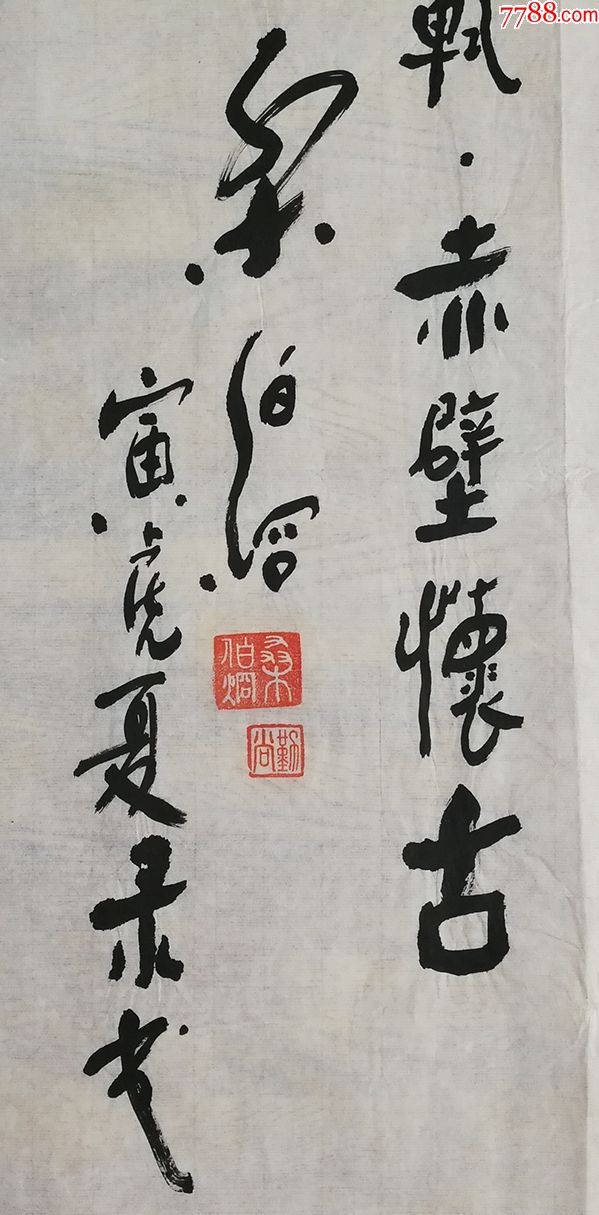 7788.com
軾·赤壁懷古
桑伯炯
寅虎夏录书
桑伯炯